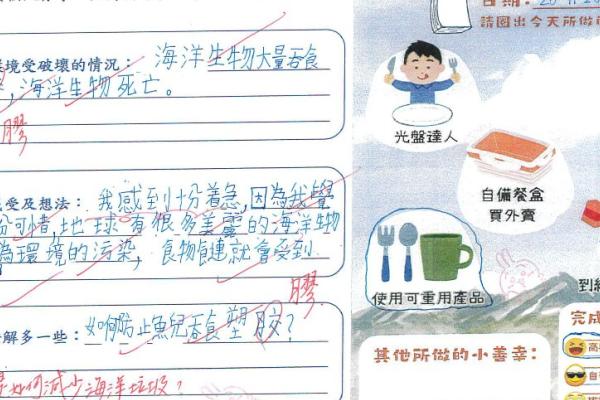 境受破壞的情況：海洋生物大量吞食
，海洋生物死亡。
膠
受及想法：我感到十份着急，因為我覺
份可惜，地球有很多美麗的海洋生物
為環境的污染，食物鏈就會受到
膠
解多一些：如何防止魚兒吞食塑膠？
如何減少海洋垃圾？
日期：
請圈出今天所做的
光盤達人
自備餐盒
買外賣
使用可重用產品
其他所做的小善幸：
完成
高
自